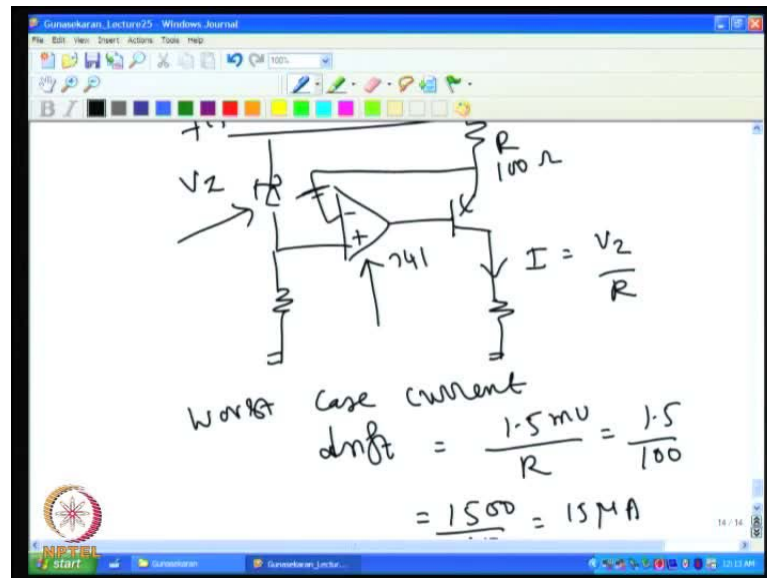 Gunasekaran_Lecture25 - Windows Journal
File Edit View Insert Actions Tools Help
100%
B I
VZ
R
100 Ω
-
+
741
I = VZ / R
Worst case current
drift = 1.5 mV / R = 1.5 / 100
= 1500 = 15 μA
14 / 14
NPTEL
start
Gunasekaran
Gunasekaran_Lectur...
12:13 AM